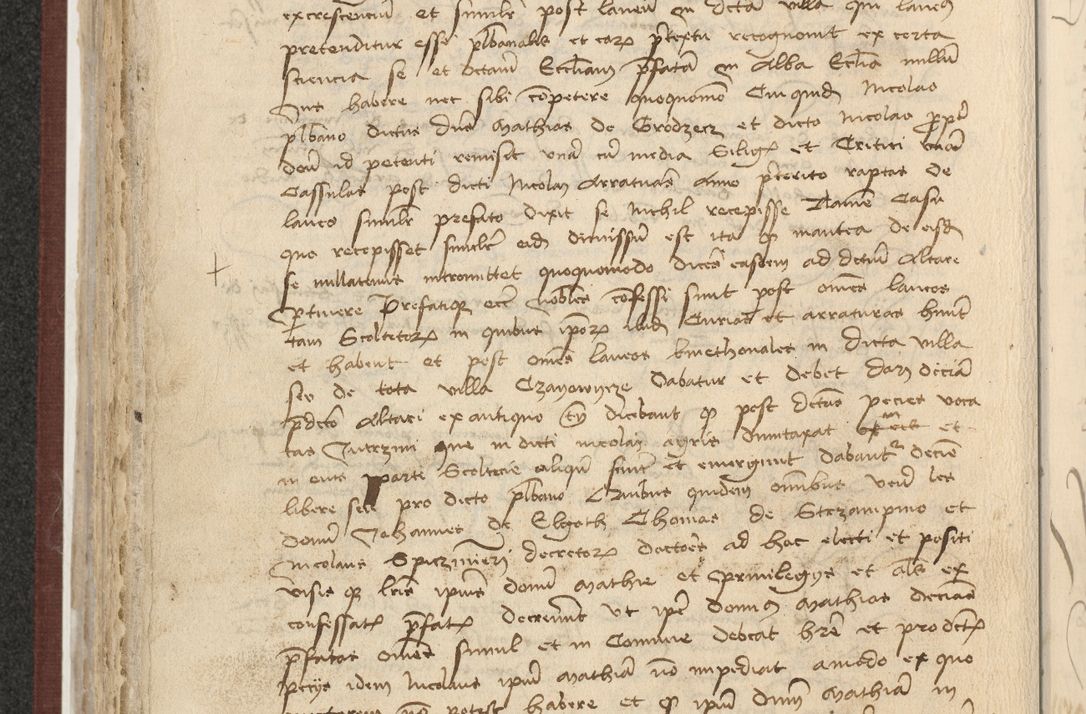 excrescencium et similiter post laneum in dicta villa qui laneus
pretenditur esse plebanalis et eorum pretextu recognovit ex certa
sciencia se et dictam Ecclesiam prefatam in Alba Ecclesia nullum
Jus habere nec sibi competere quoquomodo Cui quidem Nicolao
plebano dictus dominus Mathias de Grodzecz et dicto Nicolao propter
deum id petenti remisit unam cum media Siliginis et Tritici unam
Cassulas post dicti Nicolai Arraturas Anno preterito raptas De
laneo similiter prefato dixit se Nichil recepisse Tamen Casu
quo recepisset similiter eidem dimissum est ita quod in antea de eisdem
se nullatenus intromittet quoquomodo decimas easdem ad dictum Altare
pertinere Prefatique eciam Nobiles confessi sunt post omnes laneos
tam Scoltetorum in quibus ipsorum ibidem Curias et arraturas habuerunt
et habent et post omnes laneos kmethonales in dicta villa
seu de tota villa Czanowycze dabatur et debet dari decima
predicto Altari ex antiquo tamen dicebant quod post dictas pecies voca
tas Jutrzini que in dicti Nicolai agris dumtaxat et
in eius parte Scoltecie aliqui sunt et emergunt dabantur decime
libere seu pro dicto plebano Quibus quidem omnibus veniens
dominus Johannes de Elgoth Thomas de Strzampino et
Nicolaus Spiczmieri decretorum doctores ad hoc electi et positi
visis que literis ipsius domini Mathie et privilegiis et aliis ex
confessatis prefatis decreverunt ut ipse dominus Mathias decimas
prefatas omnes simul et in Commune debeat habere et pro dictis
peciis idem Nicolaus ipsum Mathiam non impediat amodo ex quo
non potest habere et quod ipsum dominum Mathiam in